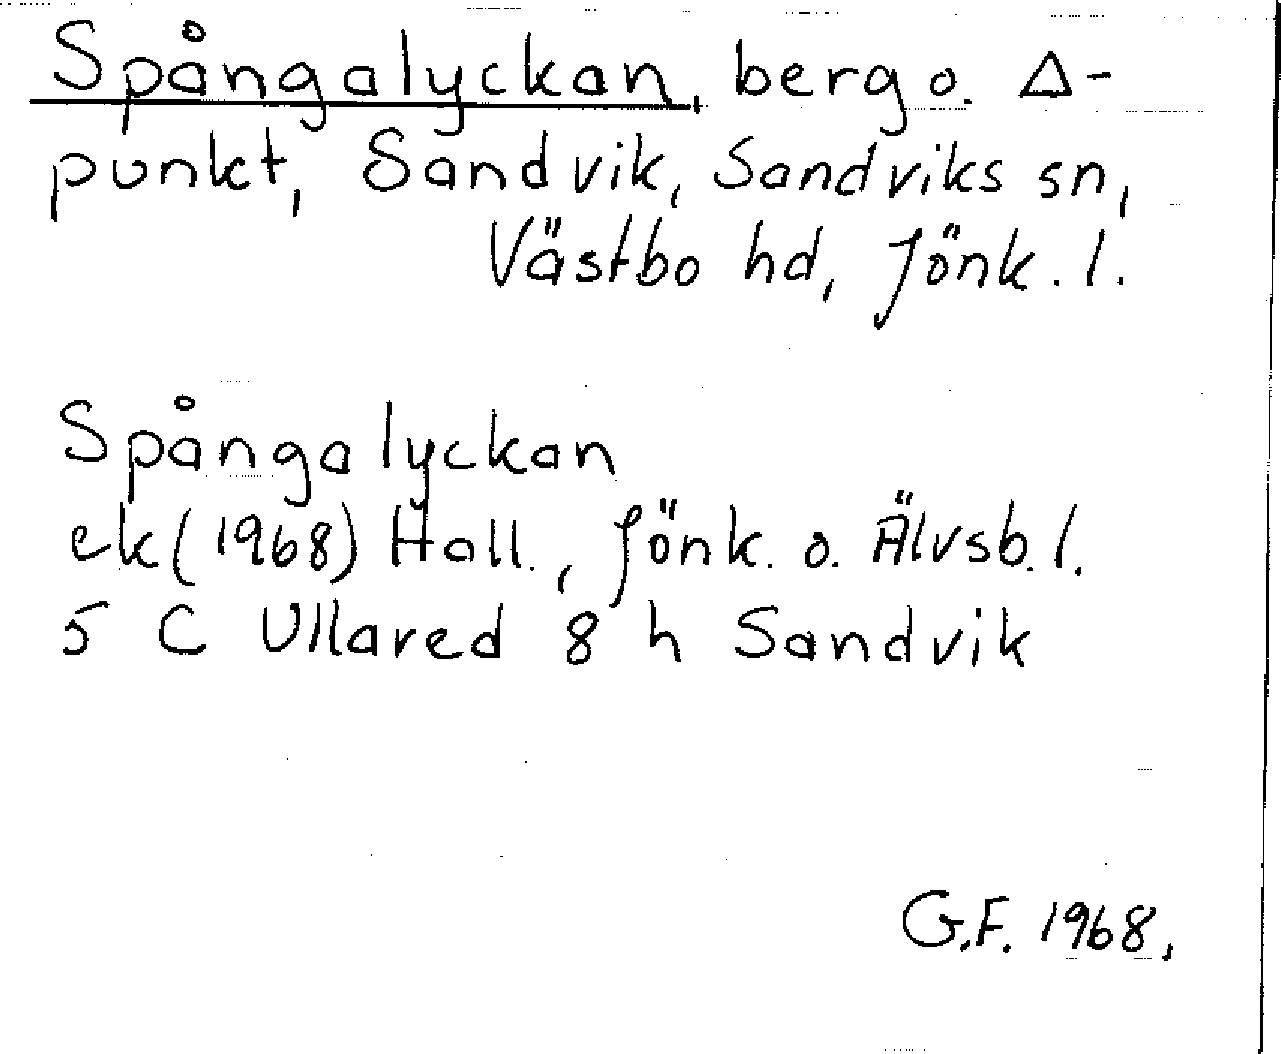 Spångalyckan, berg o. Δ-
punkt, Sandvik, Sandviks sn,
Västbo hd, Jönk. l.
Spångalyckan
ek (1968) Hall., Jönk. o. Älvsb. l.
5 C Ullared 8 h Sandvik
G.F. 1968,